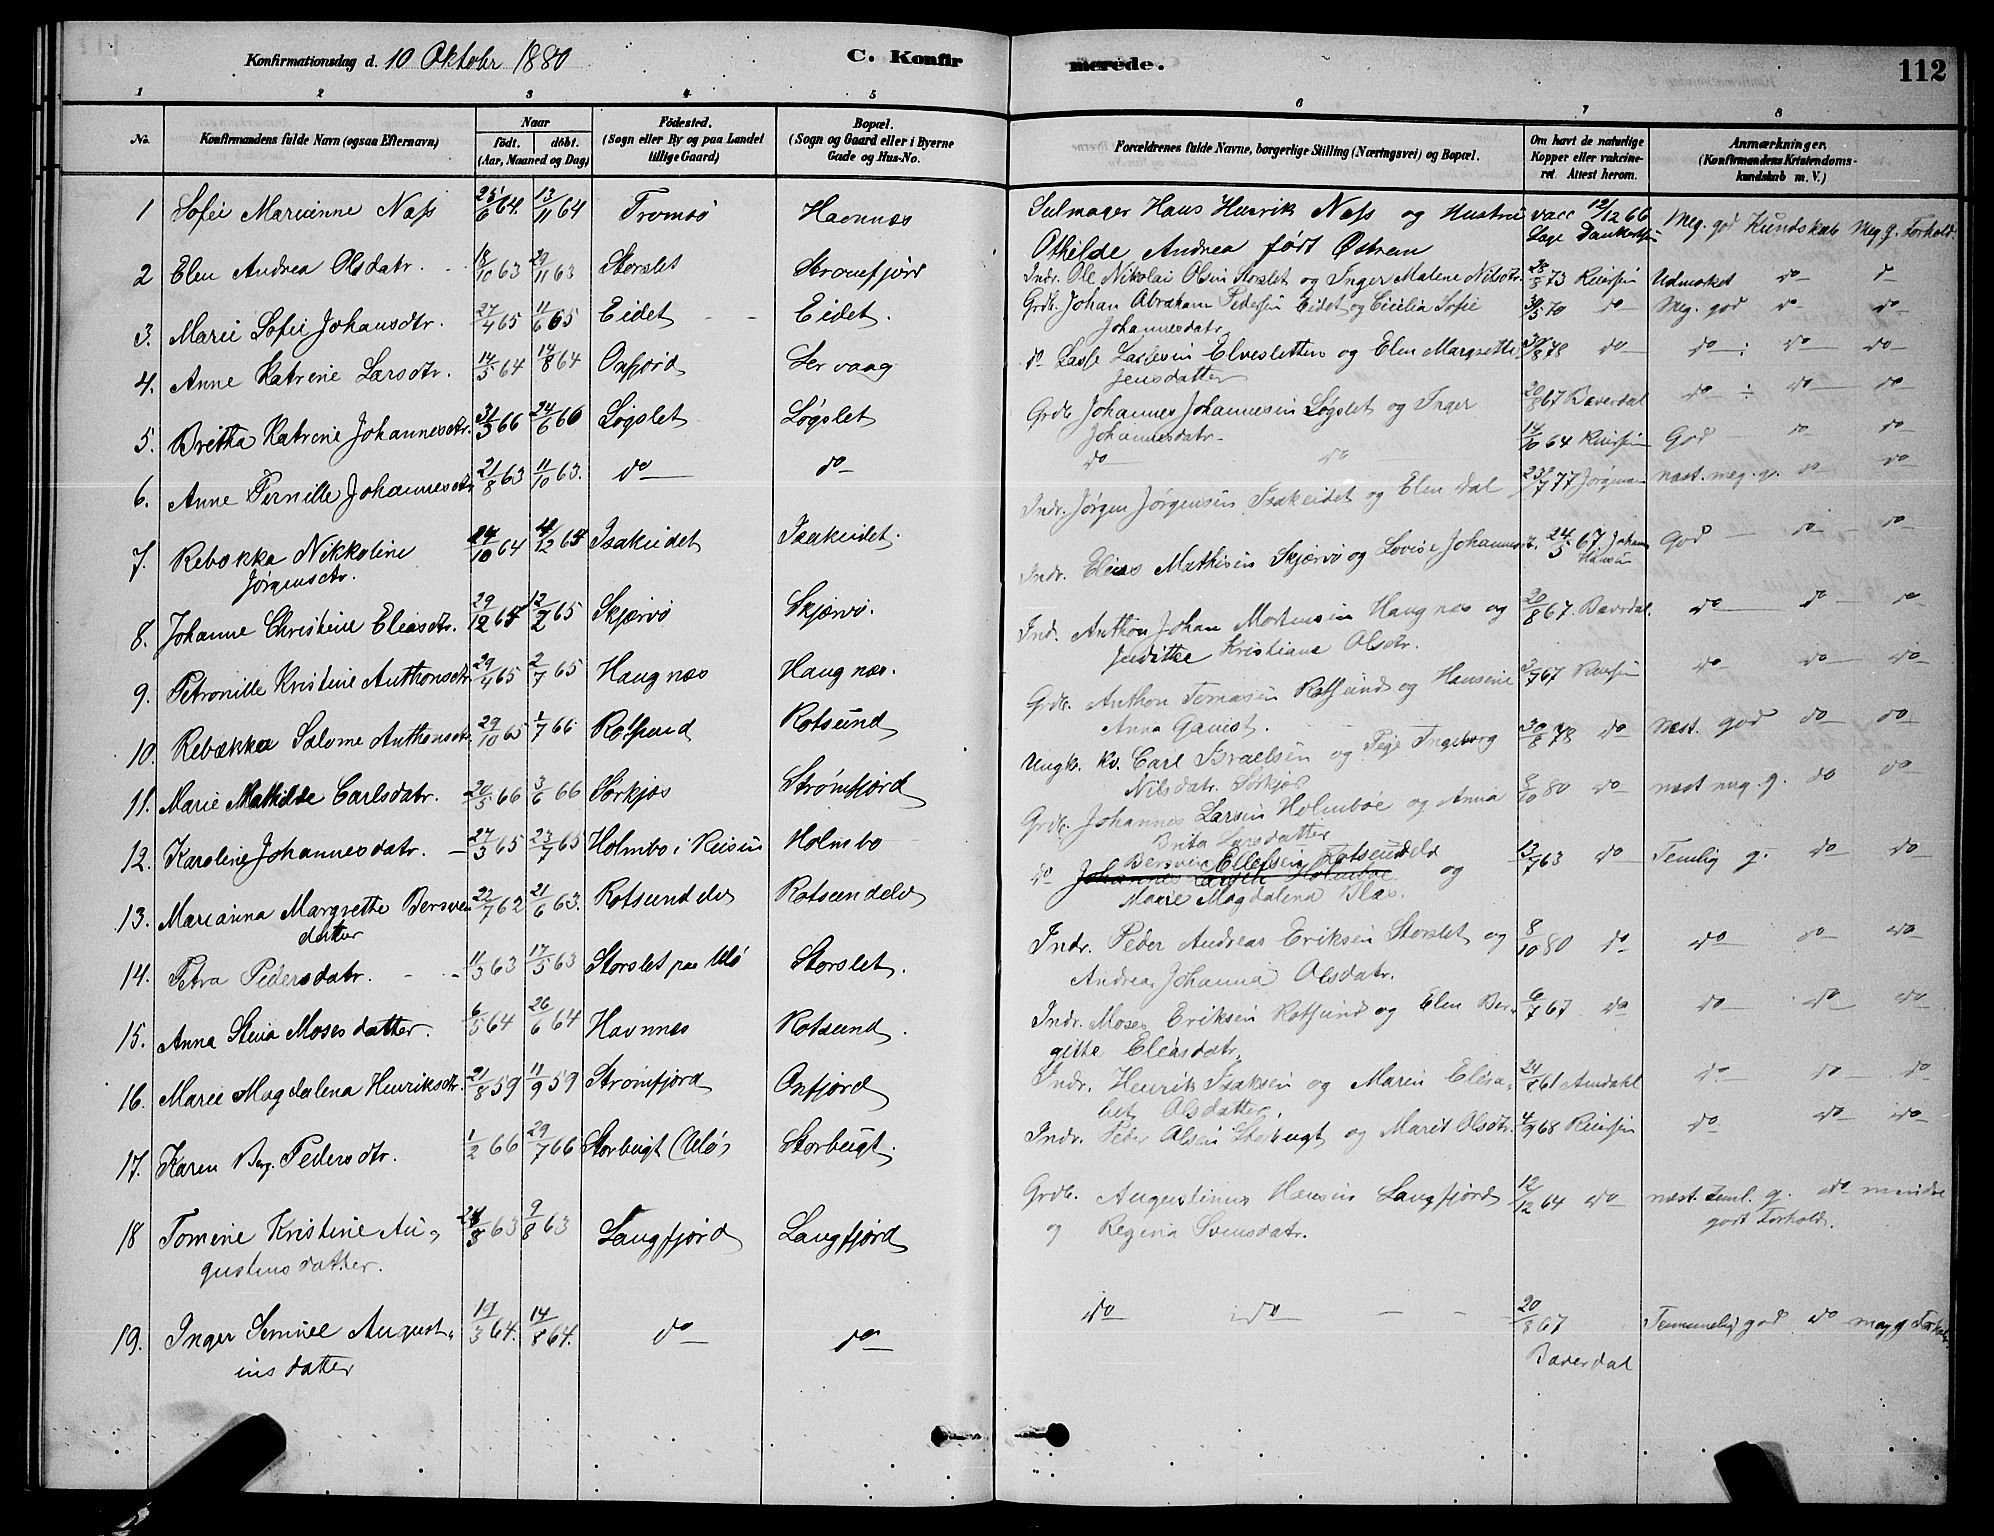 Konfirmationsdag d. 10 Oktobr 1880
C. Konfirmerede.
112
1 2 3 4 5 6 7 8
No. Konfirmandens fulde Navn (ogsaa Efternavn) Naar født. døbt. (Aar, Maaned og Dag) Fødested. (Sogn eller By og paa Landet tillige Gaard) Bopæl. (Sogn og Gaard eller i Byerne Gade og Hus-No. Forældrenes fulde Navne, borgerlige Stilling (Næringsvei) og Bopæl. Om havt de naturlige Kopper eller vakcineret. Attest herom. Anmærkninger. (Konfirmandens Kristendomskundskab m. V.)
1 Sofie Marianne Næss 25/6 64. 13/11 64 Tromsø Havnnæs Selmager Hans Henrik Næss og Hustru vacc 12/12 66 Meg. god Kundskab Meg g. Forhold
Othilde Andrea født Østrem Læge Dankertsen
2 Elen Andrea Olsdatr. 18/10 63 29/11 63 Storslet Strømfjord Indr. Ole Nikolai Olsen Storslet og Inger Malene Nilsdtr. 28/8 73 Reiersen Udmærket do do
3. Marie Sofie Johansdtr. 27/4 65 11/6 65 Eidet Eidet. Grdb. Johan Abraham Pedersen Eidet og Cicilia Sofie 30/5 70 do Meg. god do do
Johannesdatr.
4. Anne Katrine Larsdtr. 14/5 64 14/8 64 Oxfjord Servaag do Lasse Lassesen Elvesletten og Elen Margrethe 30/8 78 do do do do
Jensdatter
5. Breta Katrine Johannesdtr. 31/3 66 24/6 66 Løgslet Løgslet Grdb. Johannes Johannesen Løgslet og Inger 20/8 67 Baverdal do do do
Johannesdatr.
6. Anne Pernille Johannesdtr. 21/8 63 11/10 63. do do do do 14/10 64 Reiersen God do do
7. Rebekka Nikkoline 24/10 64 4/12 64 Isakeidet Isakeidet. Indr. Jørgen Jørgensen Isakeidet og Elen Dal 23/7 77 Jørgensen næst. meg. g. do do
Jørgensdtr.
8. Johanne Christine Eliasdtr. 29/12 64 12/2 65 Skjærvø Skjærvø. Indr. Elias Mathisen Skjærvø og Lovise Johannesdtr. 24/5 67 Johan Hansen God do do
9. Petronille Kristine Anthonsdtr. 29/4 65 2/7 65 Haugnæs Haugnæs. Indr. Anthon Johan Mortensen Haugnæs og 20/8 67 Baverdal. do do do
Judithe Kristiane Olsdtr.
10. Rebækka Salome Anthonsdtr. 29/10 65 1/7 66 Rotsund Rotsund Grdb. Anthon Tomasen Rotsund og Hansine 2/7 67 Reiersen do do do
Anna Gamst.
11. Marie Mathilde Carlsdatr. 20/5 66 3/6 66 Sørkjos Strømfjord Ungk. Kv. Carl Israelsen og Pige Ingeborg 30/8 78 do næst. god do do
Nilsdatr. Sørkjos
12. Karoline Johannesdatr. 27/3 65 23/7 65 Holmbo i Reisen Holmbo Grdb. Johannes Larsen Holmboe og Anna 8/10 80 do næst meg. g. do do
Brita Larsdatter
13. Marianna Margrethe Bersvendatter 22/7 62 21/6 63. Rotsundelv Rotsundelv do Bersven Ellefsen Rotsundelv og 13/7 63 do Temlig g. do do
Johannes Larsen Holmboe
Marie Magdalena Blax.
14. Petra Pedersdatr. 11/3 63 17/5 63 Storslet paa Ulø Storslet. Indr. Peder Andreas Eriksen Storslet og 8/10 80 do do do do
Andrea Johanna Olsdatr.
15. Anna Stina Mosesdatter. 6/5 64 26/6 64 Havnnæs Rotsund Indr. Moses Eriksen Rotsund og Elen Bergitte Eliasdatr. 6/7 67 do do do do
16. Marie Magdalena Henriksdtr. 21/8 59 11/9 59 Strømfjord Oxfjord Indr. Henrik Isaksen og Maren Elisabet Olsdatter. 24/8 61 Aundahl do do do
17. Karen Berg. Pedersdtr. 1/2 66 29/7 66 Storbugt (Ulø) Storbugt. Indr. Peder Olsen Storbugt og Marit Olsdtr. 4/9 68 Reiersen do do do
18 Tomine Kristine Augustinusdatter. 24/3 63 9/8 63 Langfjord Langfjord Grdb. Augustinus Hansen Langfjord 12/12 64 do næst. Teml. g. do mindre
og Regina Svensdatr. godt Forhold.
19. Inger Semine Augustinusdatter 19/3 64. 14/8 64. do do do do 20/8 67 Temmelig god do meg g Forhold
Baverdal